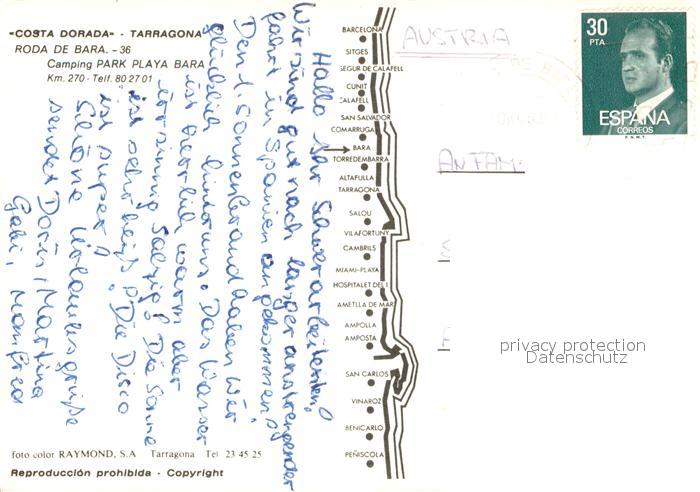 "COSTA DORADA" - TARRAGONA
RODA DE BARA. - 36
Camping PARK PLAYA BARA
Km. 270 - Telf. 80 27 01
Hallo Ihr Schwerarbeitenden!
Wir sind gut nach langer anstrengender
fahrt in Spanien angekommen!
Den 1. Sonnenbrand haben Wir
glücklich hinter uns. Das Wasser
ist herrlich warm aber
irrsinnig salzig! Die Sonne
ist sehr heiß! Die Disco
ist super!
Schöne Urlaubsgrüße
sendet Doris, Martina
Gabi, Manfred
foto color RAYMOND, S.A Tarragona Tel 23 45 25
Reproducción prohibida - Copyright
BARCELONA
SITGES
SEGUR DE CALAFELL
CUNIT
CALAFELL
SAN SALVADOR
COMARRUGA
BARA
TORREDEMBARRA
ALTAFULLA
TARRAGONA
SALOU
VILAFORTUNY
CAMBRILS
MIAMI-PLAYA
HOSPITALET DEL I.
AMETLLA DE MAR
AMPOLLA
AMPOSTA
SAN CARLOS
VINAROZ
BENICARLO
PEÑISCOLA
AUSTRIA
AN FAM.
30
PTA
ESPAÑA
CORREOS
F.N.M.T.
privacy protection
Datenschutz